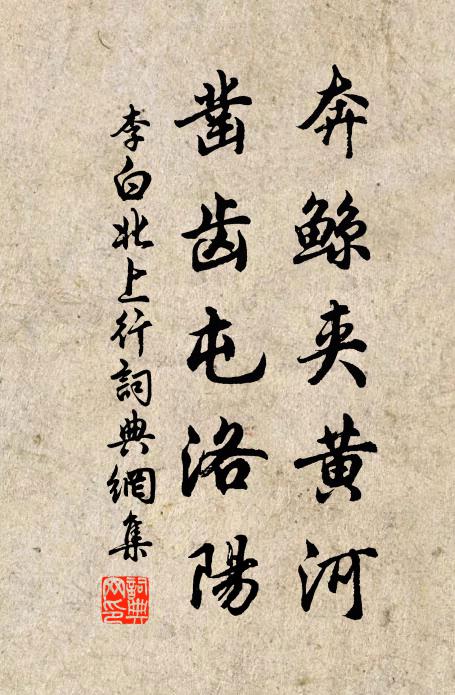 奔鲸夹黄河
凿齿屯洛陽
李白北上行詞典網集
詞典
网印